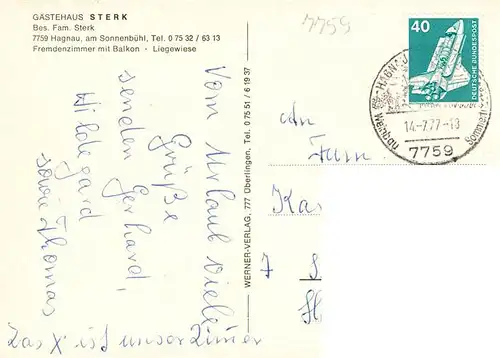 GÄSTEHAUS STERK
Bes. Fam. Sterk
7759 Hagnau, am Sonnenbühl, Tel. 0 75 32 / 63 13
Fremdenzimmer mit Balkon · Liegewiese
7759
40
DEUTSCHE BUNDESPOST
14.-7.77-18
7759
Weinbau
Vom Urlaub viele
Grüße
senden Gerhard,
Hildegard
sowie Thomas
Das X ist unser Zimmer
WERNER-VERLAG, 777 Überlingen, Tel. 0 75 51 / 6 19 37
An
Fam